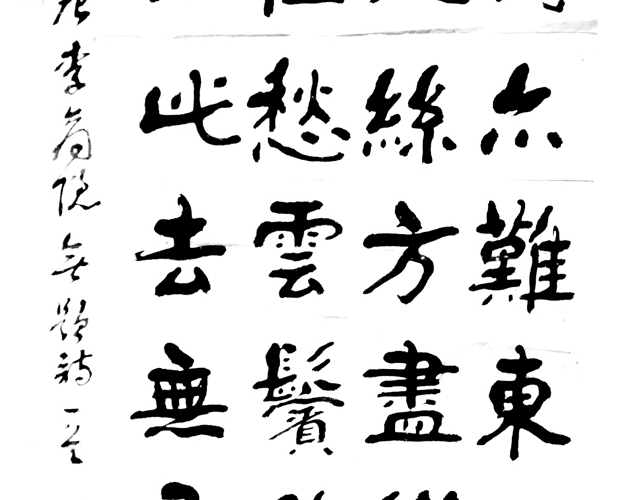 亦難東
絲方盡
愁雲鬢
此去無
李商隱無題詩一首